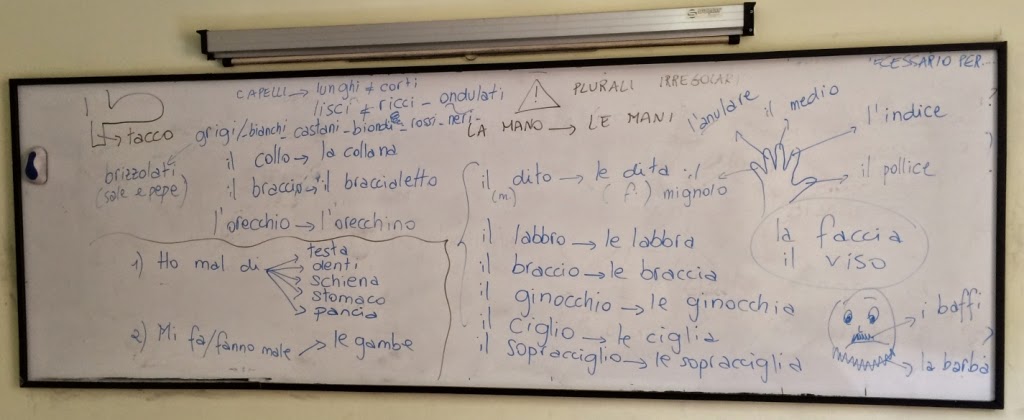 CAPELLI → lunghi ≠ corti
lisci ≠ ricci - ondulati
grigi/bianchi castani - biondi - rossi - neri -
brizzolati
(sale e pepe)
→ tacco
il collo → la collana
il braccio → il braccialetto
l'orecchio → l'orecchino
1) Ho mal di
testa
denti
schiena
stomaco
pancia
2) Mi fa/fanno male → le gambe
! PLURALI IRREGOLARI
LA MANO → LE MANI
il dito → le dita
(m) (f.)
il labbro → le labbra
il braccio → le braccia
il ginocchio → le ginocchia
il ciglio → le ciglia
il sopracciglio → le sopracciglia
il mignolo
l'anulare
il medio
l'indice
il pollice
la faccia
il viso
i baffi
la barba
PER...